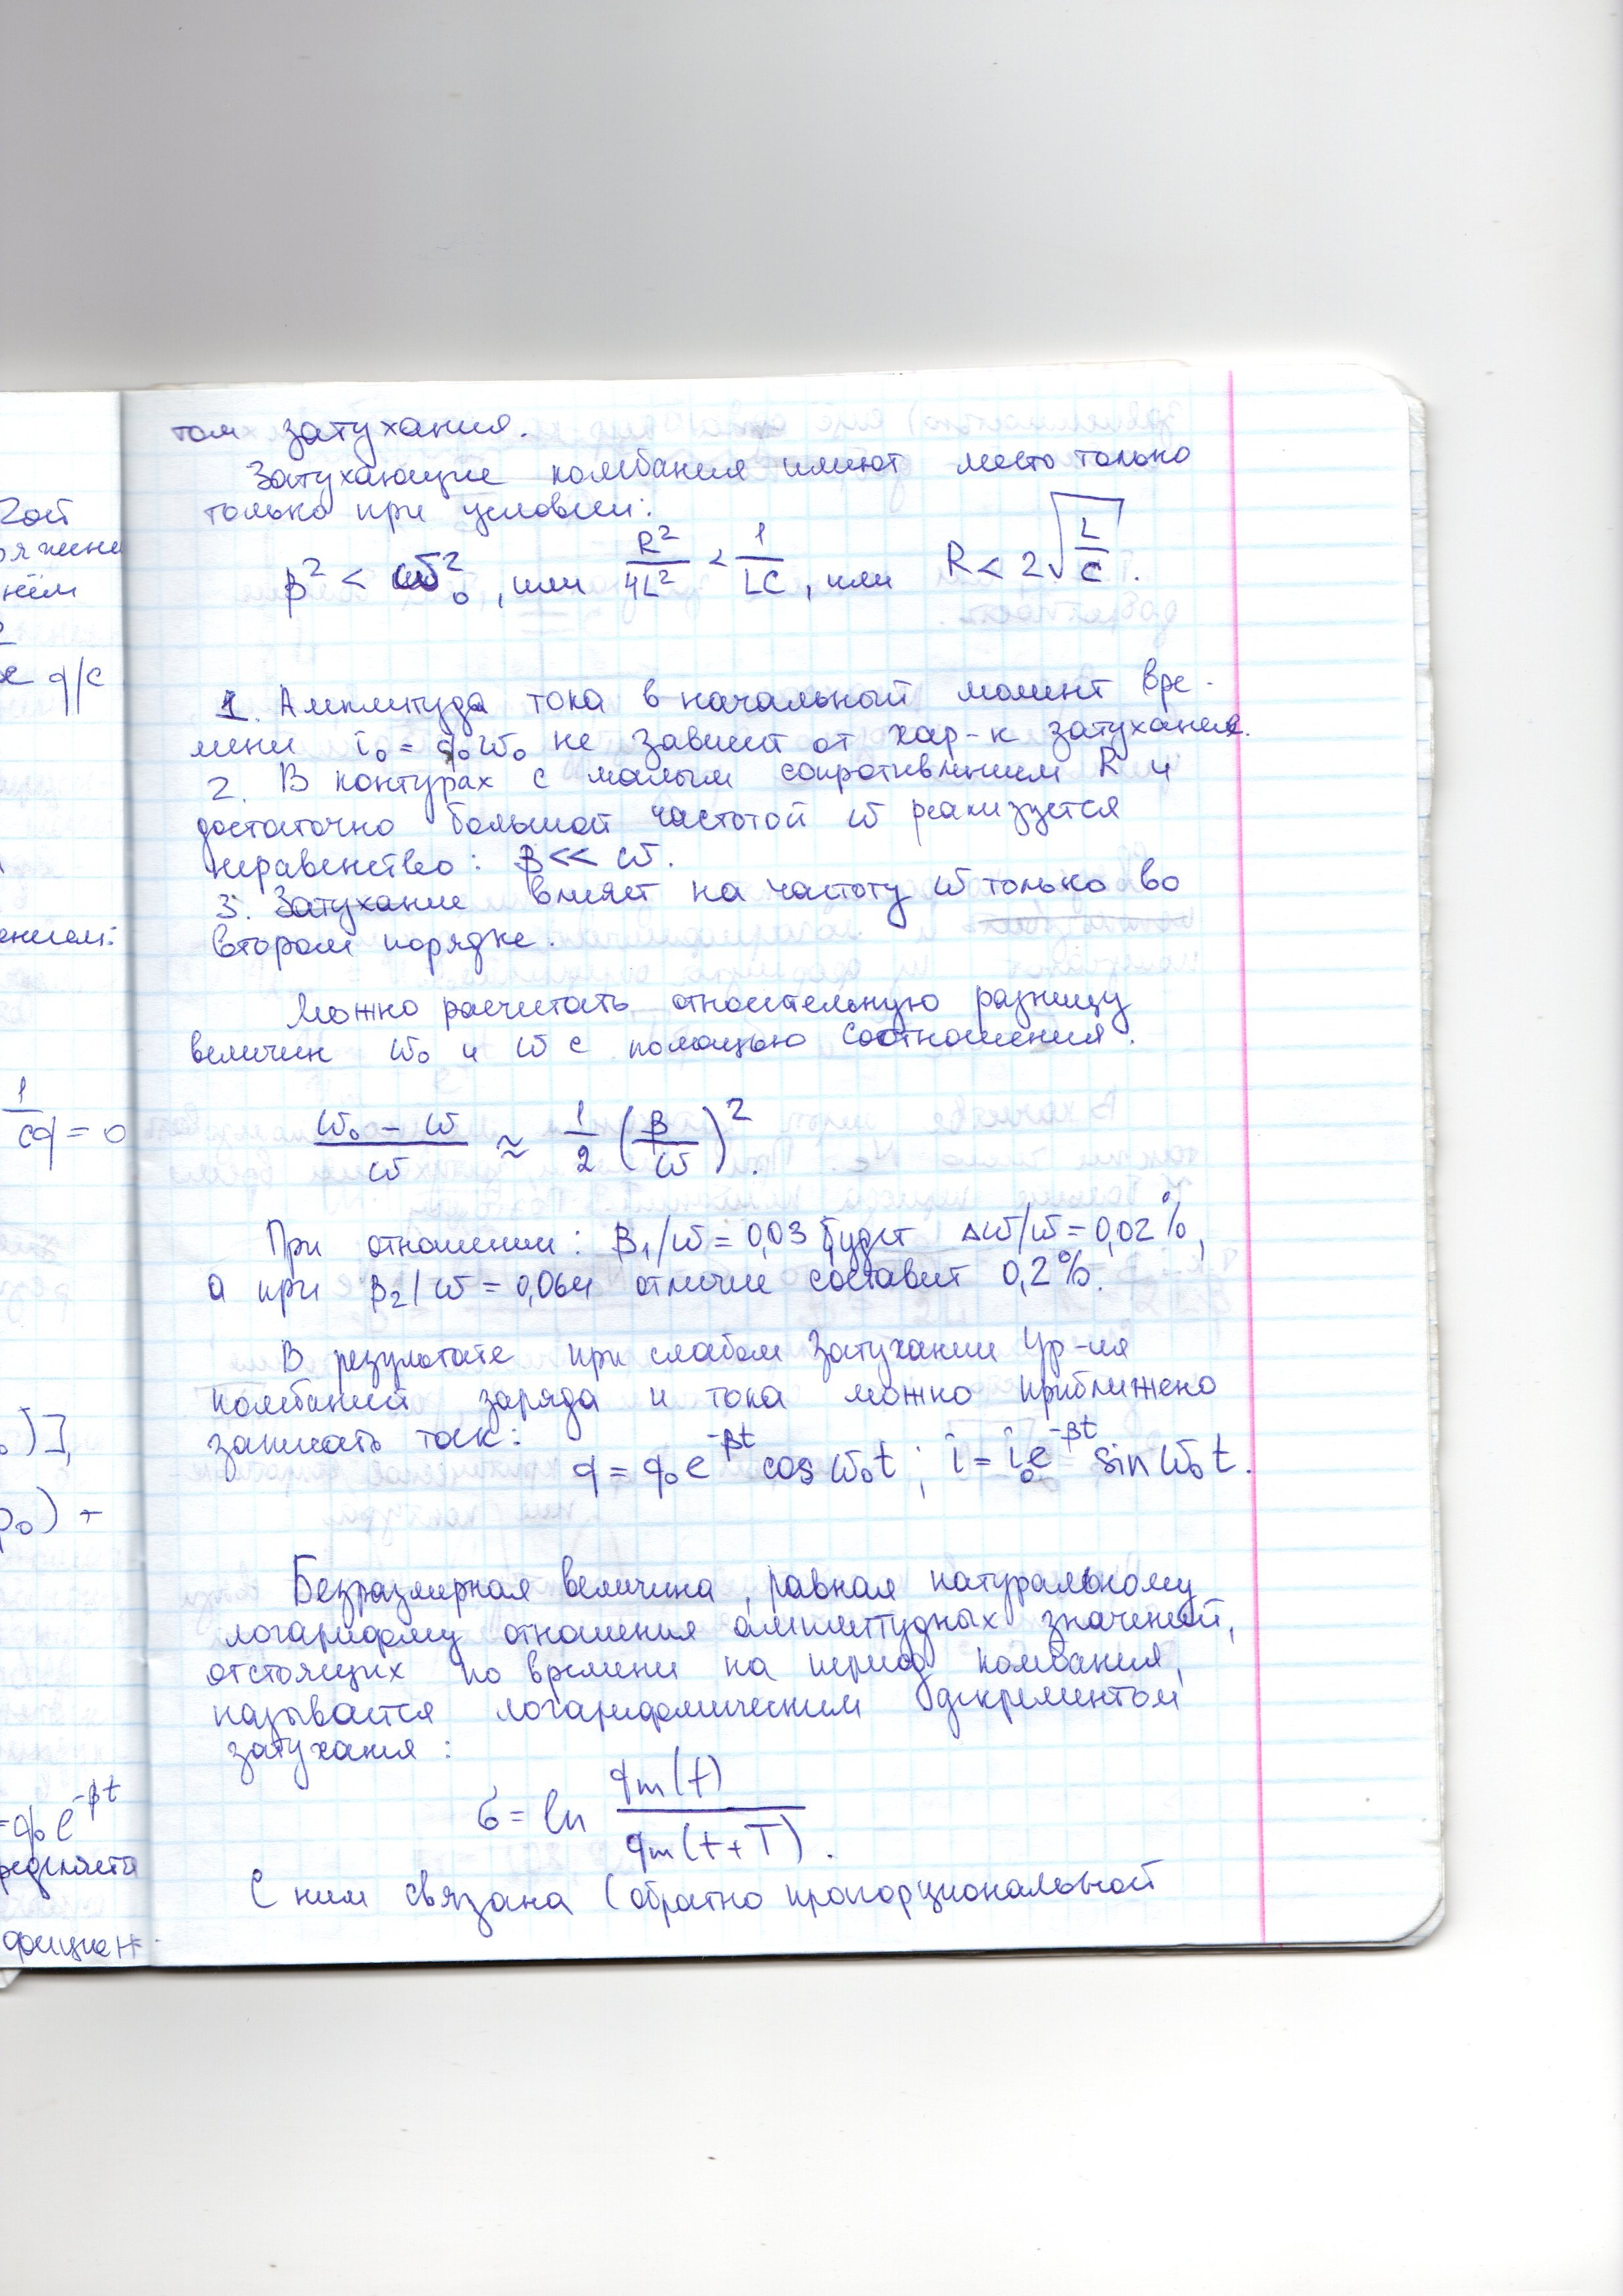 гой
ряжени
нём
2
е q/c
ением:
1
cq = 0
)],
ρ₀) +
=q₀e^-βt
ределяета
фициен-
том затухания.
Затухающие колебания имеют место только
только при условии:
β² < ω₀², или R²/4L² < 1/LC, или R < 2√(L/C).
1. Амплитуда тока в начальный момент вре-
мени i₀ = q₀ω₀ не зависит от хар-к затухания.
2. В контурах с малым сопротивлением R и
достаточно большой частотой ω реализуется
неравенство: β << ω.
3. Затухание влияет на частоту ω только во
втором порядке.
Можно расчитать относительную разницу
величин ω₀ и ω с помощью соотношения.
(ω₀ - ω)/ω ≈ 1/2 (β/ω)².
При отношении: β₁/ω = 0,03 будет Δω/ω = 0,02%,
а при β₂/ω = 0,064 отличие составит 0,2%.
В результате при слабом затухании ур-ия
колебаний заряда и тока можно приближено
записать так:
q = q₀e^-βt cos ω₀t ; i = i₀e^-βt sin ω₀t.
Безразмерная величина, равная натуральному
логарифму отношения амплитудных значений,
отстоящих по времени на период колебания,
называется логарифмическим декрементом
затухания:
б = ln qm(t)/qm(t+T).
С ним связана (обратно пропорциональной